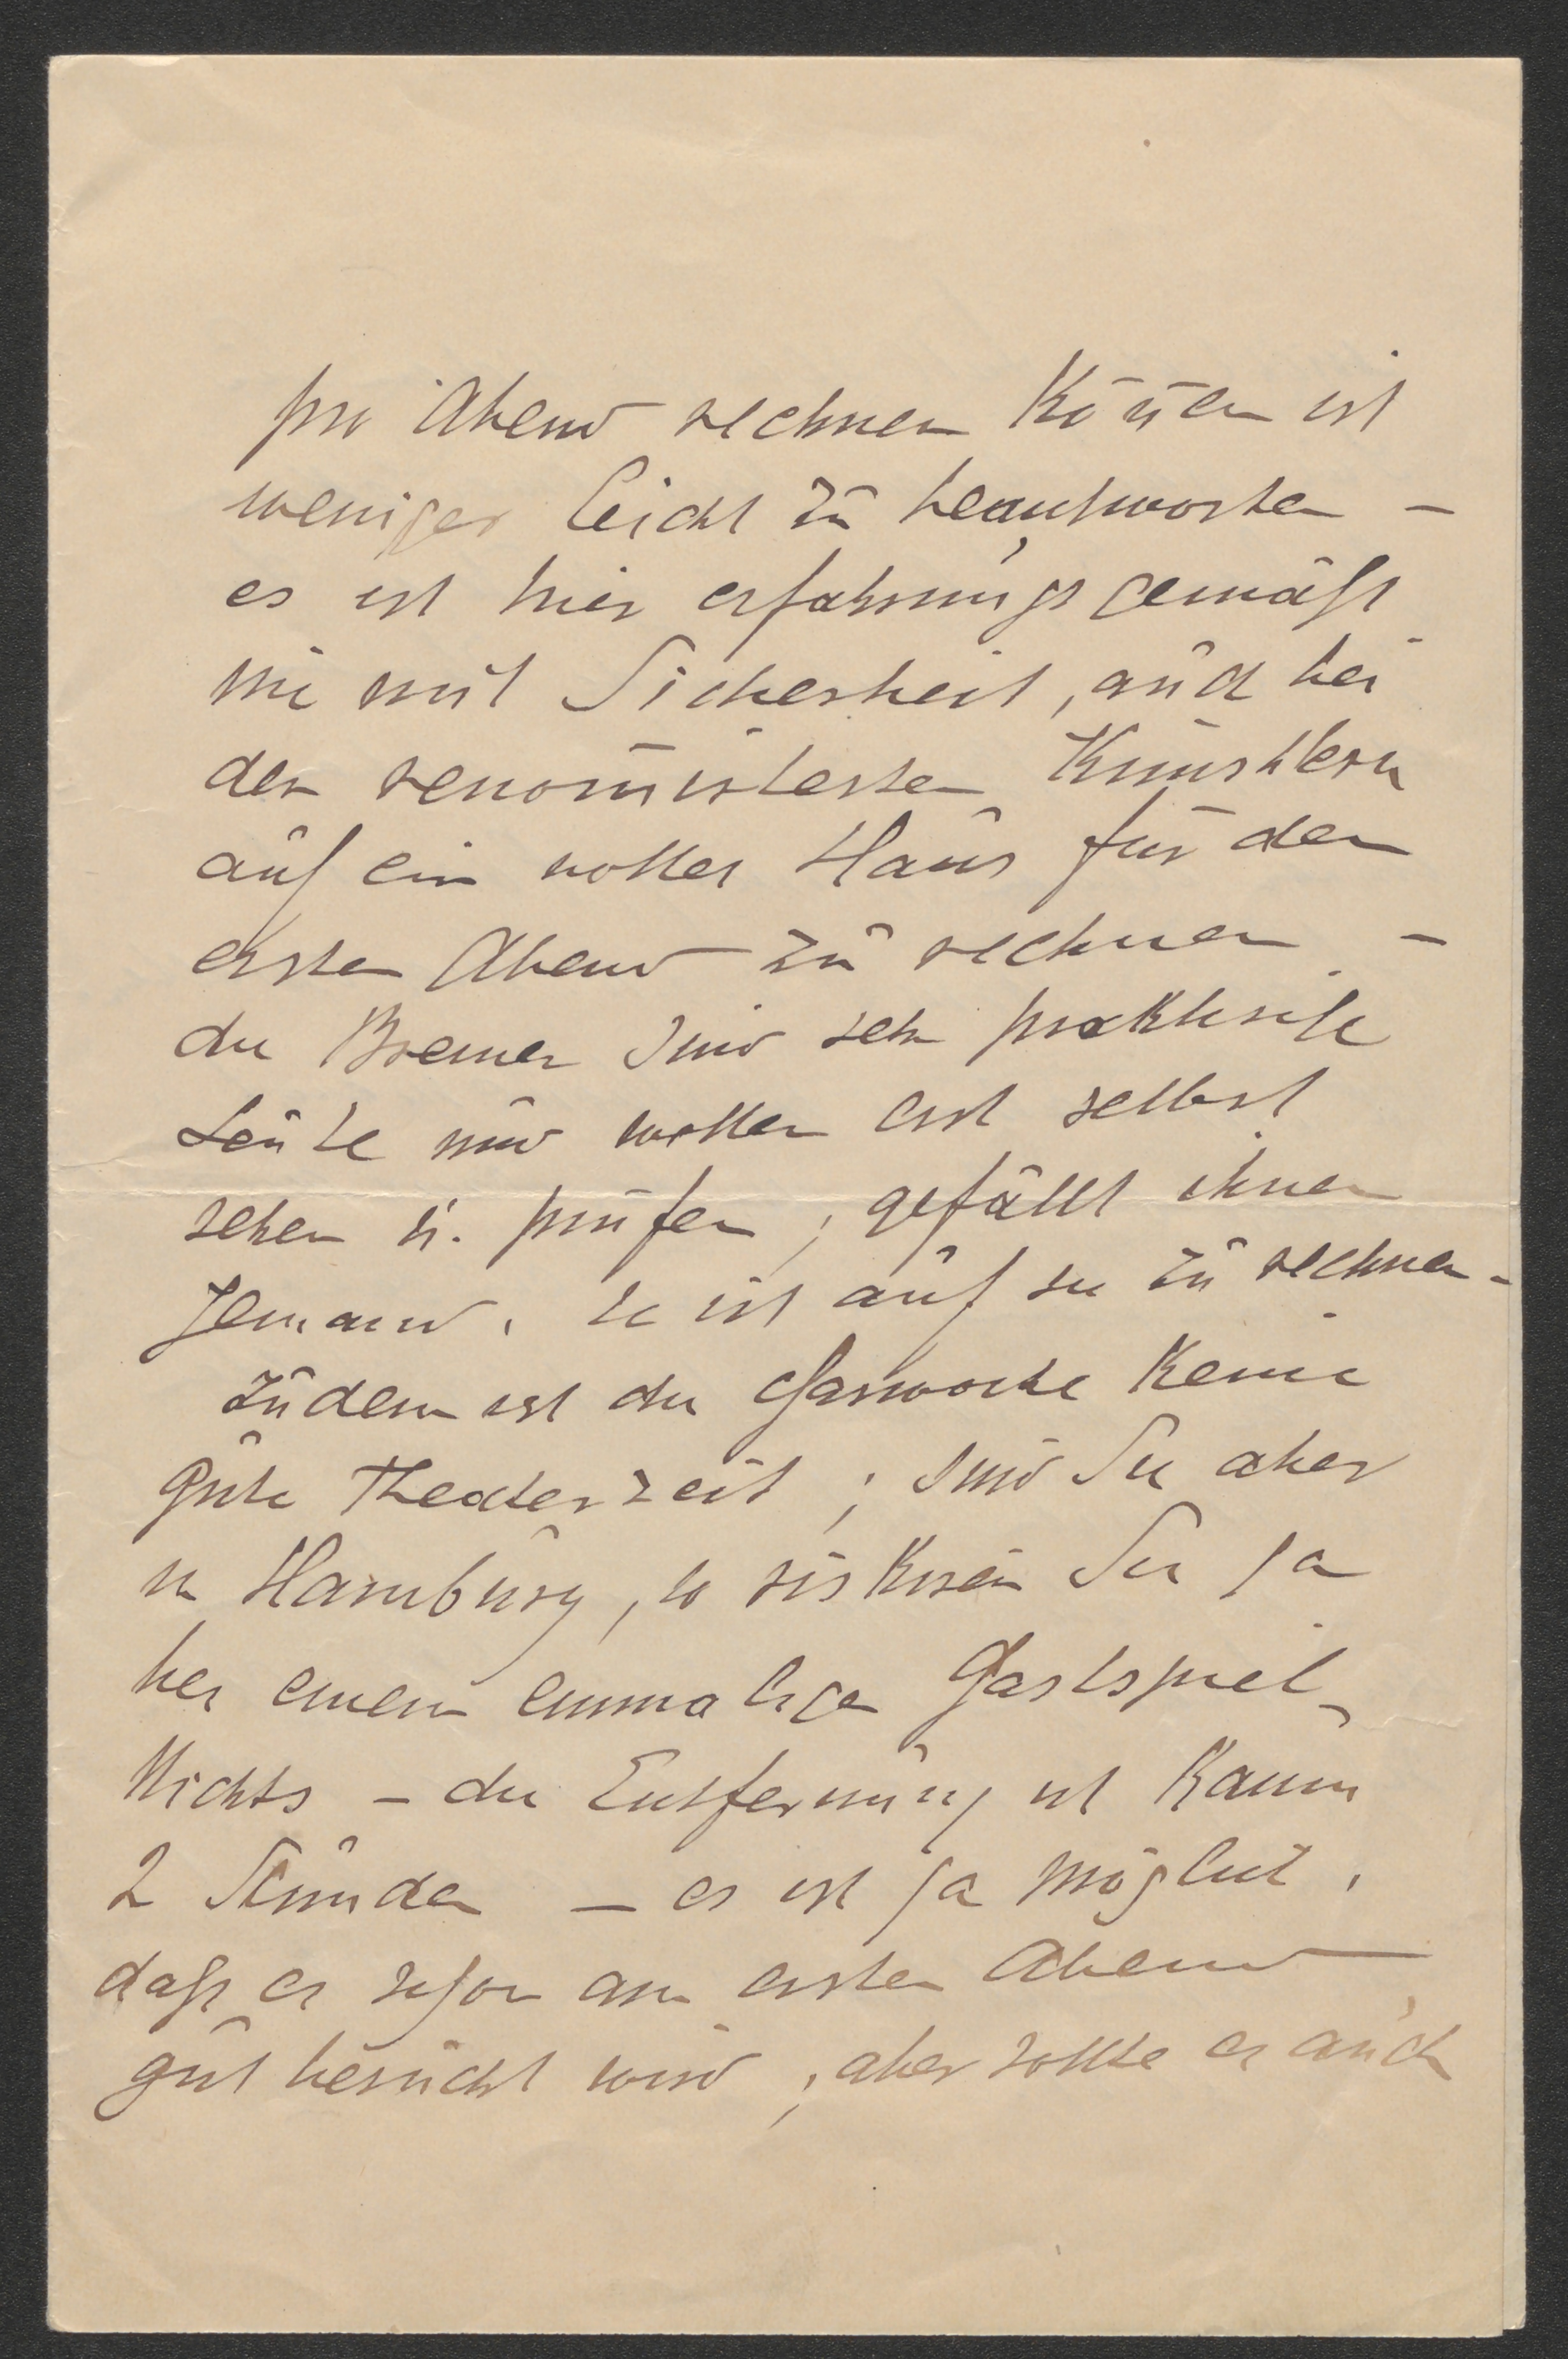 pro Abend rechnen kön̄en ist
weniger leicht zu beantworten –
es ist hier erfahrungsgemäß
nie mit Sicherheit, auch bei
den renom̄irtesten Künstlern
auf ein volles Haus für den
ersten Abend zu rechnen –
die Bremer sind sehr praktische
Leute und wollen erst selbst
sehen u. prüfen; gefällt ihnen
Jemand, so ist auf sie zu rechnen –
zudem ist die Charwoche keine
gute Theaterzeit; sind Sie aber
in Hamburg, so riskiren Sie ja
bei einem einmaligen Gastspiel
Nichts – die Entfernung ist kaum
2 Stunden – es ist ja möglich,
daß es schon am ersten Abend
gut besucht wird; aber sollte es auch